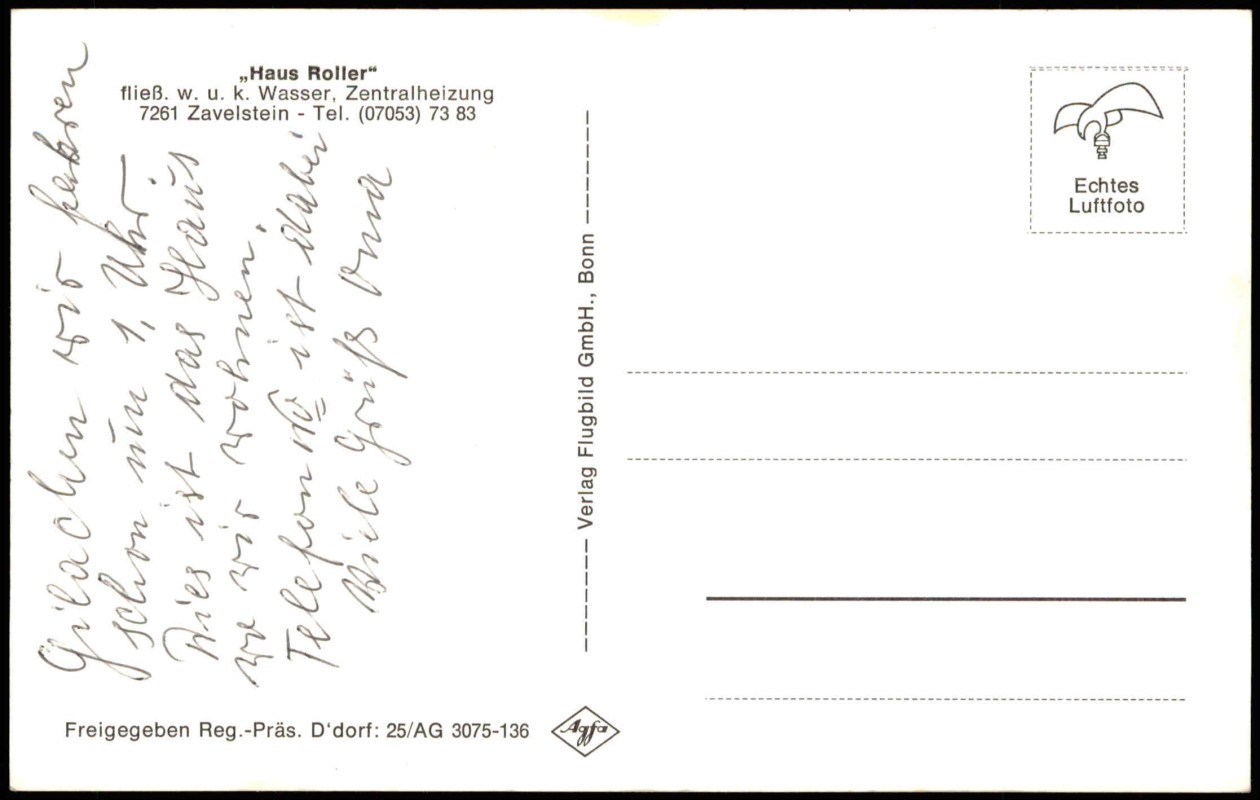 „Haus Roller“
fließ. w. u. k. Wasser, Zentralheizung
7261 Zavelstein - Tel. (07053) 73 83
wir fahren
schon um 1, Uhr.
Dies ist das Haus
wo wir wohnen,
Telefon No ist dabei
Viele Grüß Oma
Verlag Flugbild GmbH., Bonn
Echtes
Luftfoto
Freigegeben Reg.-Präs. D'dorf: 25/AG 3075-136
Agfa